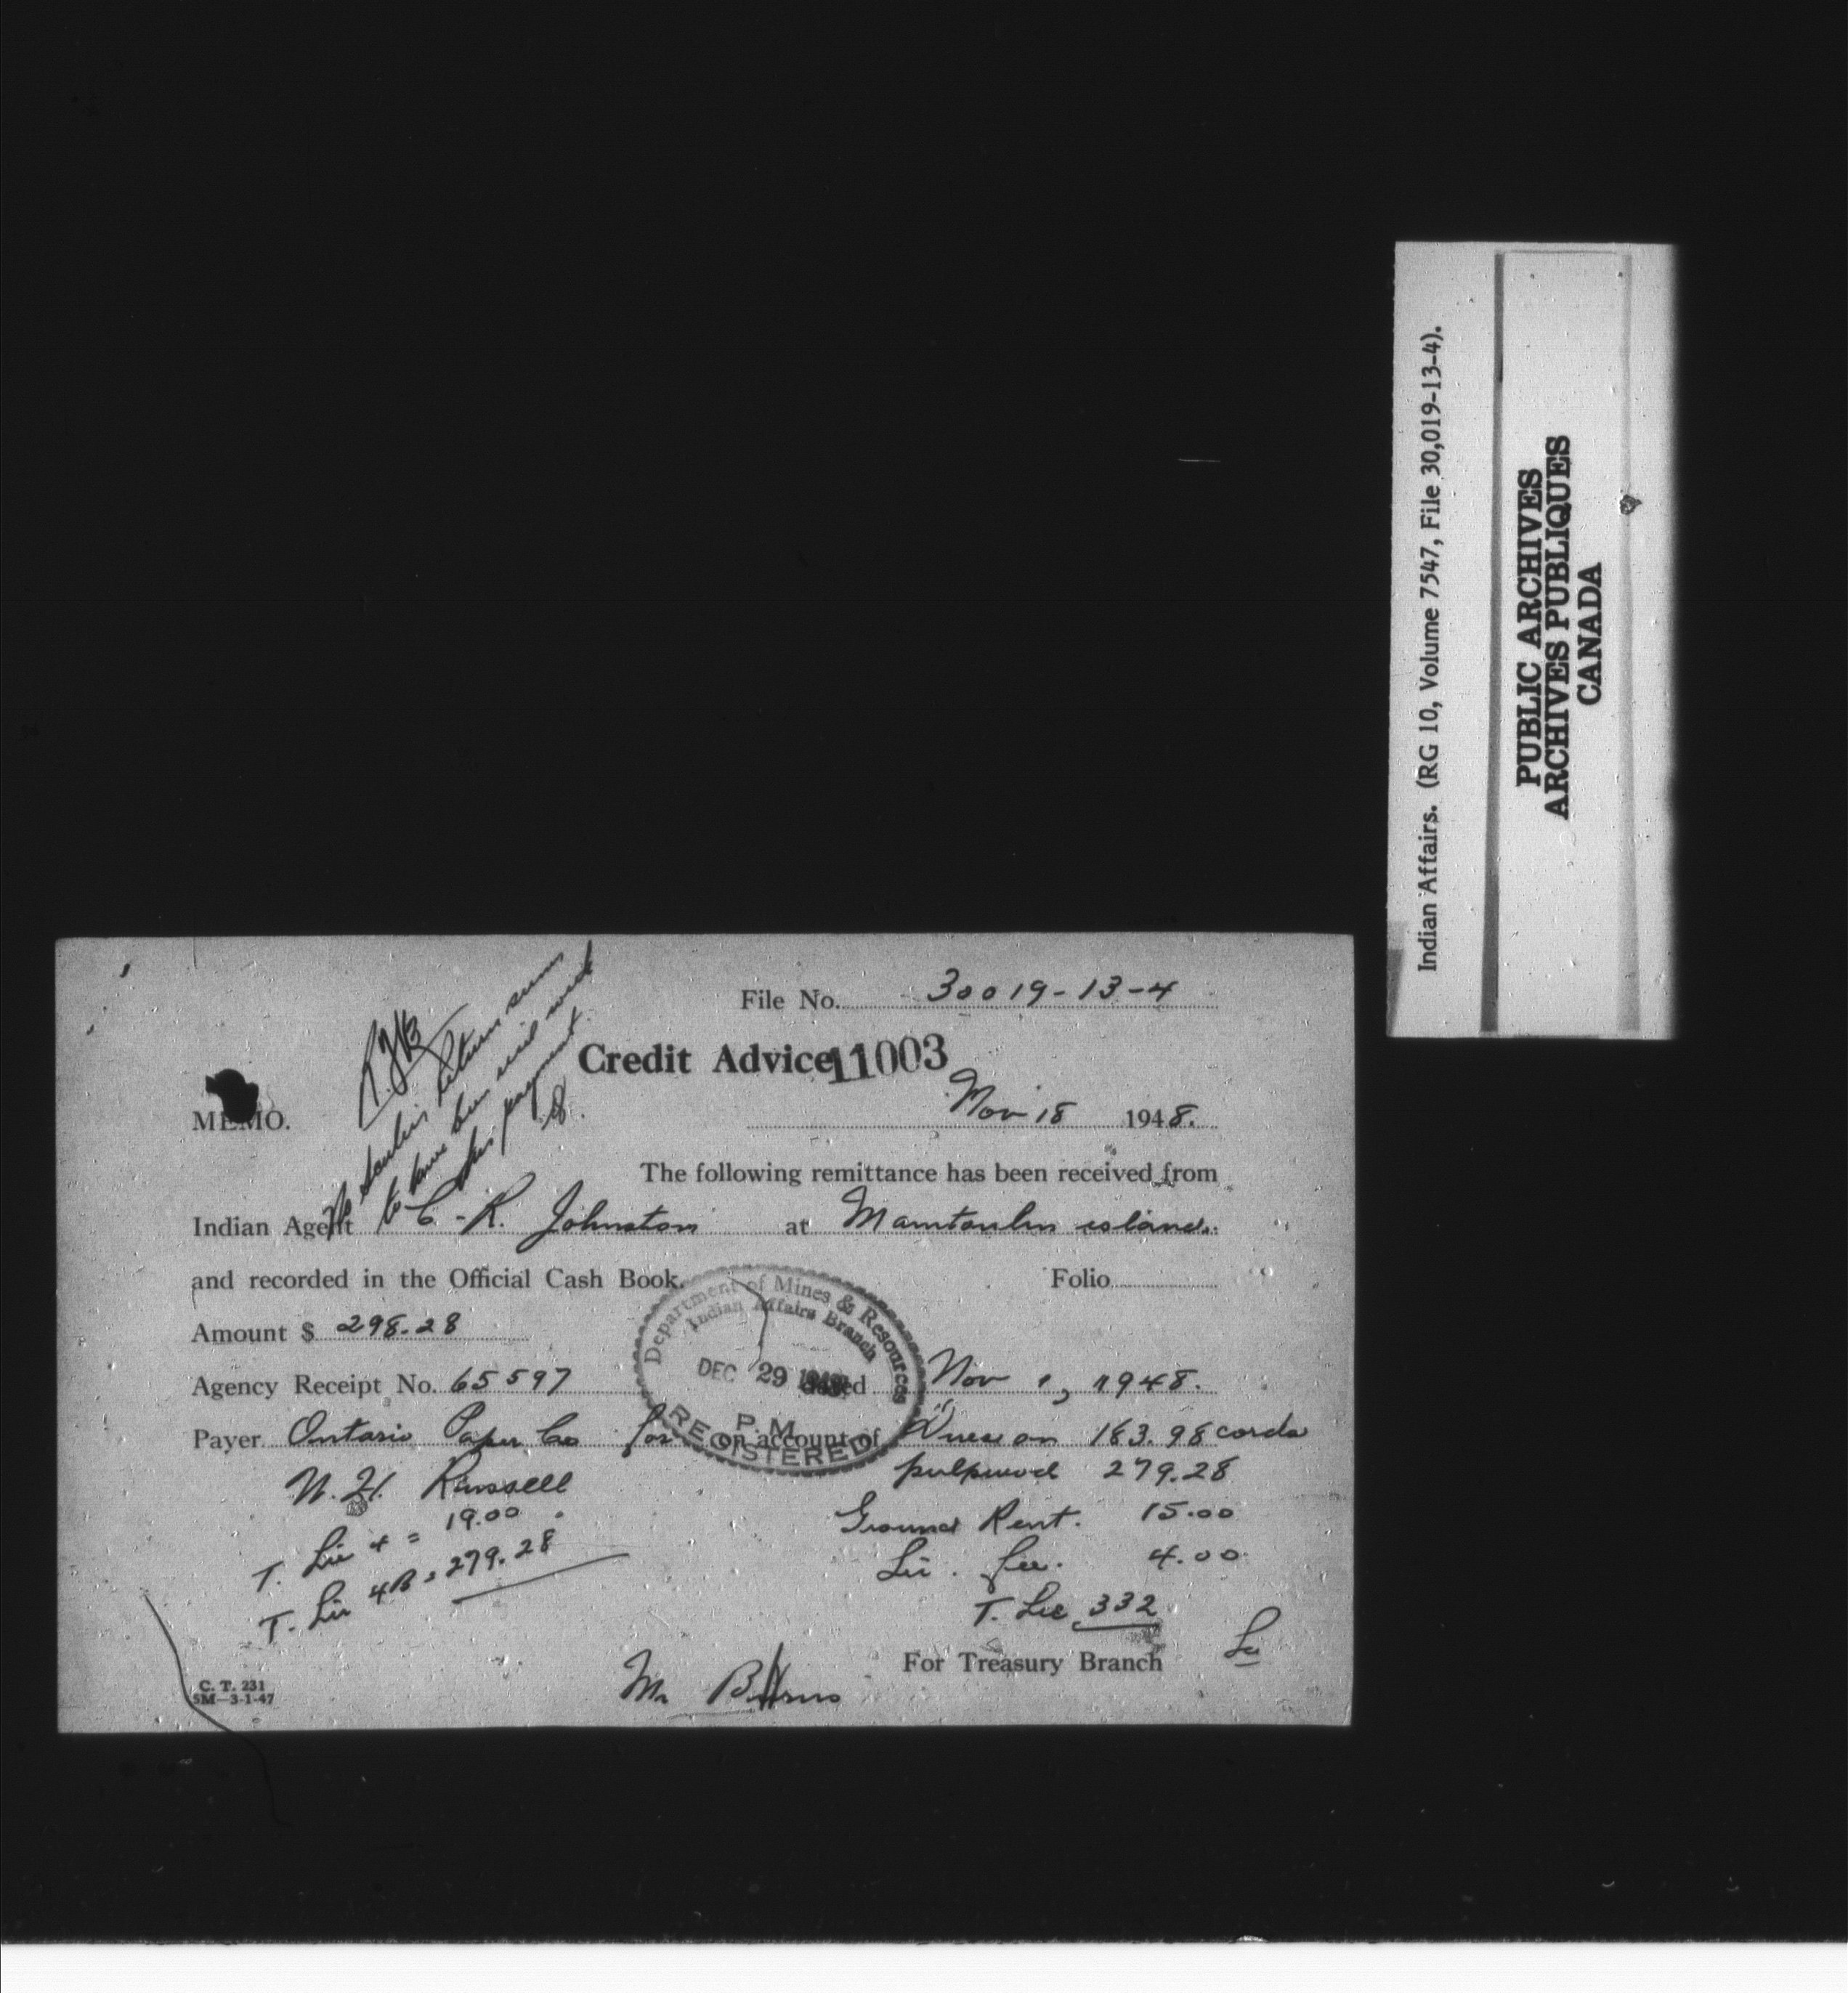 File No. 30019-13-4
Credit Advice 11003
MEMO.
Nov 18 1948.
R.J.B.
No Scalers return seems
to have been sent with
this payment.
The following remittance has been received from
Indian Agent C. R. Johnston at Manitoulin island.
and recorded in the Official Cash Book. Folio
Amount $ 298.28
Department of Mines & Resources
Indian Affairs Branch
DEC 29 1948
P.M.
REGISTERED
Agency Receipt No. 65597 dated Nov 1, 1948.
Payer Ontario Paper Co for on account of Dues on 183.98 cords
N. H. Russell pulpwood 279.28
Ground Rent. 15.00
Lic. fee. 4.00
T. Lic 332
T. Lic 4 = 19.00
T. Lic 4B = 279.28
For Treasury Branch
Mr
C. T. 231
5M-3-1-47
Indian Affairs. (RG 10, Volume 7547, File 30,019-13-4).
PUBLIC ARCHIVES
ARCHIVES PUBLIQUES
CANADA